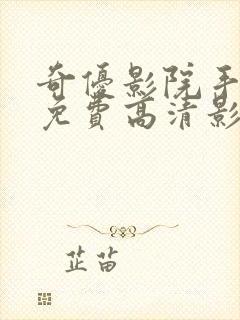 奇優影院手
免費高清影
芷苗